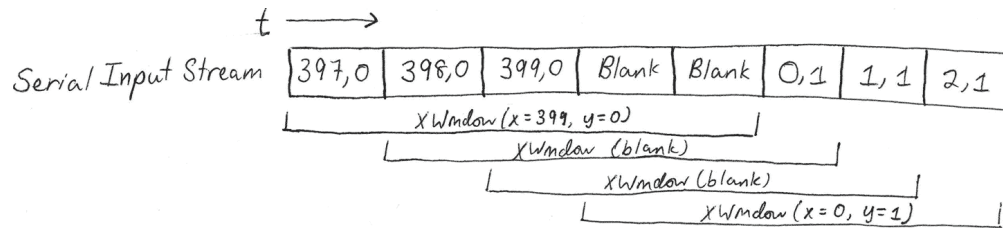 t
Serial Input Stream 397,0 398,0 399,0 Blank Blank 0,1 1,1 2,1
XWindow (x=399, y=0)
XWindow (blank)
XWindow (blank)
XWindow (x=0, y=1)